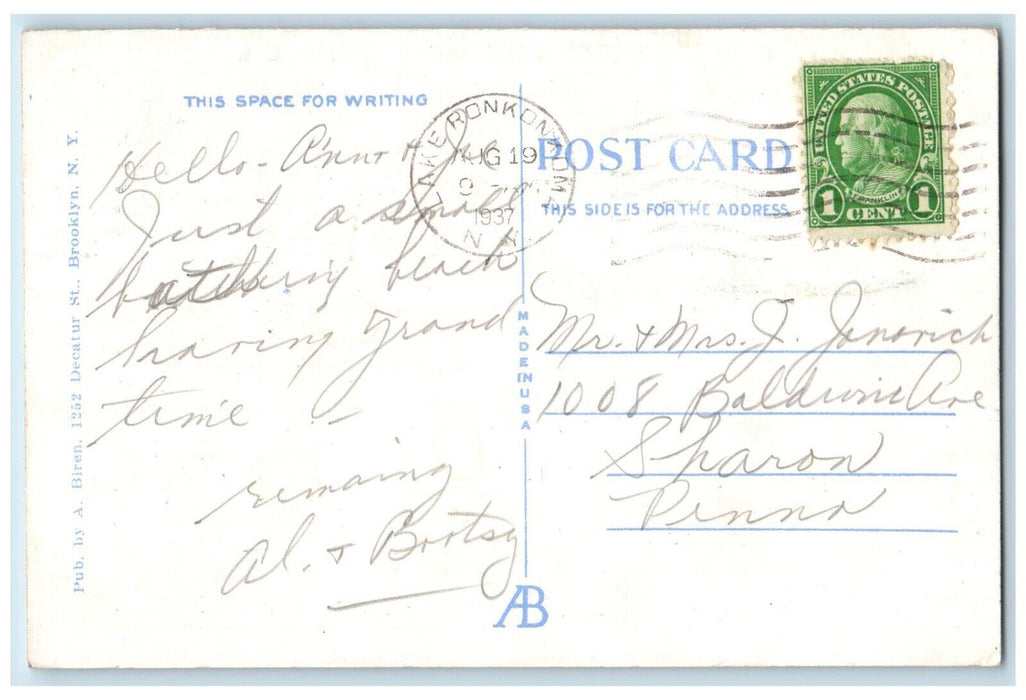 THIS SPACE FOR WRITING
Hello - Ann + J
Just a small
bathing beach
having grand
time -
remaing
Al. + Bootsy
Pub. by A. Biren. 1252 Decatur St., Brooklyn, N. Y.
MADE IN USA
AB
LAKE RONKONKOMA
AUG 19
9
1937
N.Y.
POST CARD
THIS SIDE IS FOR THE ADDRESS
UNITED STATES POSTAGE
FRANKLIN
1 CENT 1
Mr. + Mrs. J. Janovich
1008 Baldwin Ave
Sharon
Penna